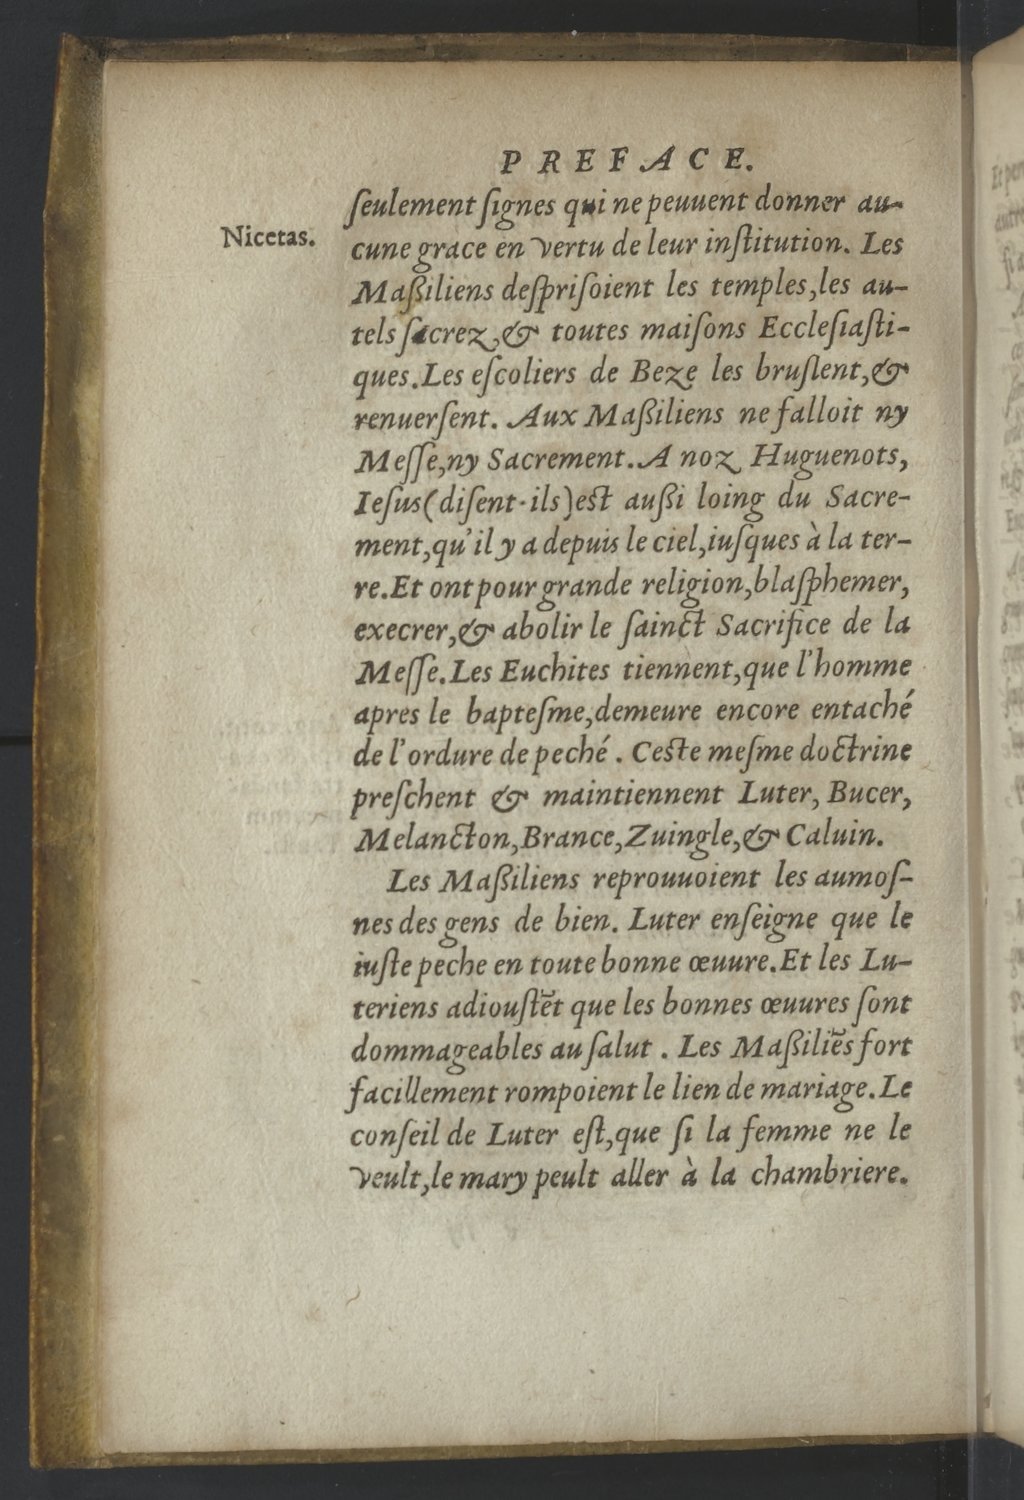 PREFACE.
ſeulement ſignes qui ne peuuent donner au-
Nicetas.
cune grace en vertu de leur inſtitution. Les
Maßiliens deſpriſoient les temples, les au-
tels ſacrez, & toutes maiſons Eccleſiaſti-
ques. Les eſcoliers de Beze les bruſlent, &
renuerſent. Aux Maßiliens ne falloit ny
Meſſe, ny Sacrement. A noz Huguenots,
Ieſus (diſent-ils) est außi loing du Sacre-
ment, qu'il y a depuis le ciel, iuſques à la ter-
re. Et ont pour grande religion, blaſphemer,
execrer, & abolir le ſainct Sacrifice de la
Meſſe. Les Euchites tiennent, que l'homme
apres le bapteſme, demeure encore entaché
de l'ordure de peché. Ceste meſme doctrine
preſchent & maintiennent Luter, Bucer,
Melancton, Brance, Zuingle, & Caluin.
Les Maßiliens reprouuoient les aumoſ-
nes des gens de bien. Luter enſeigne que le
iuſte peche en toute bonne œuure. Et les Lu-
teriens adiouſtẽt que les bonnes œuures ſont
dommageables au ſalut. Les Maßiliẽs fort
facillement rompoient le lien de mariage. Le
conſeil de Luter eſt, que ſi la femme ne le
veult, le mary peult aller à la chambriere.